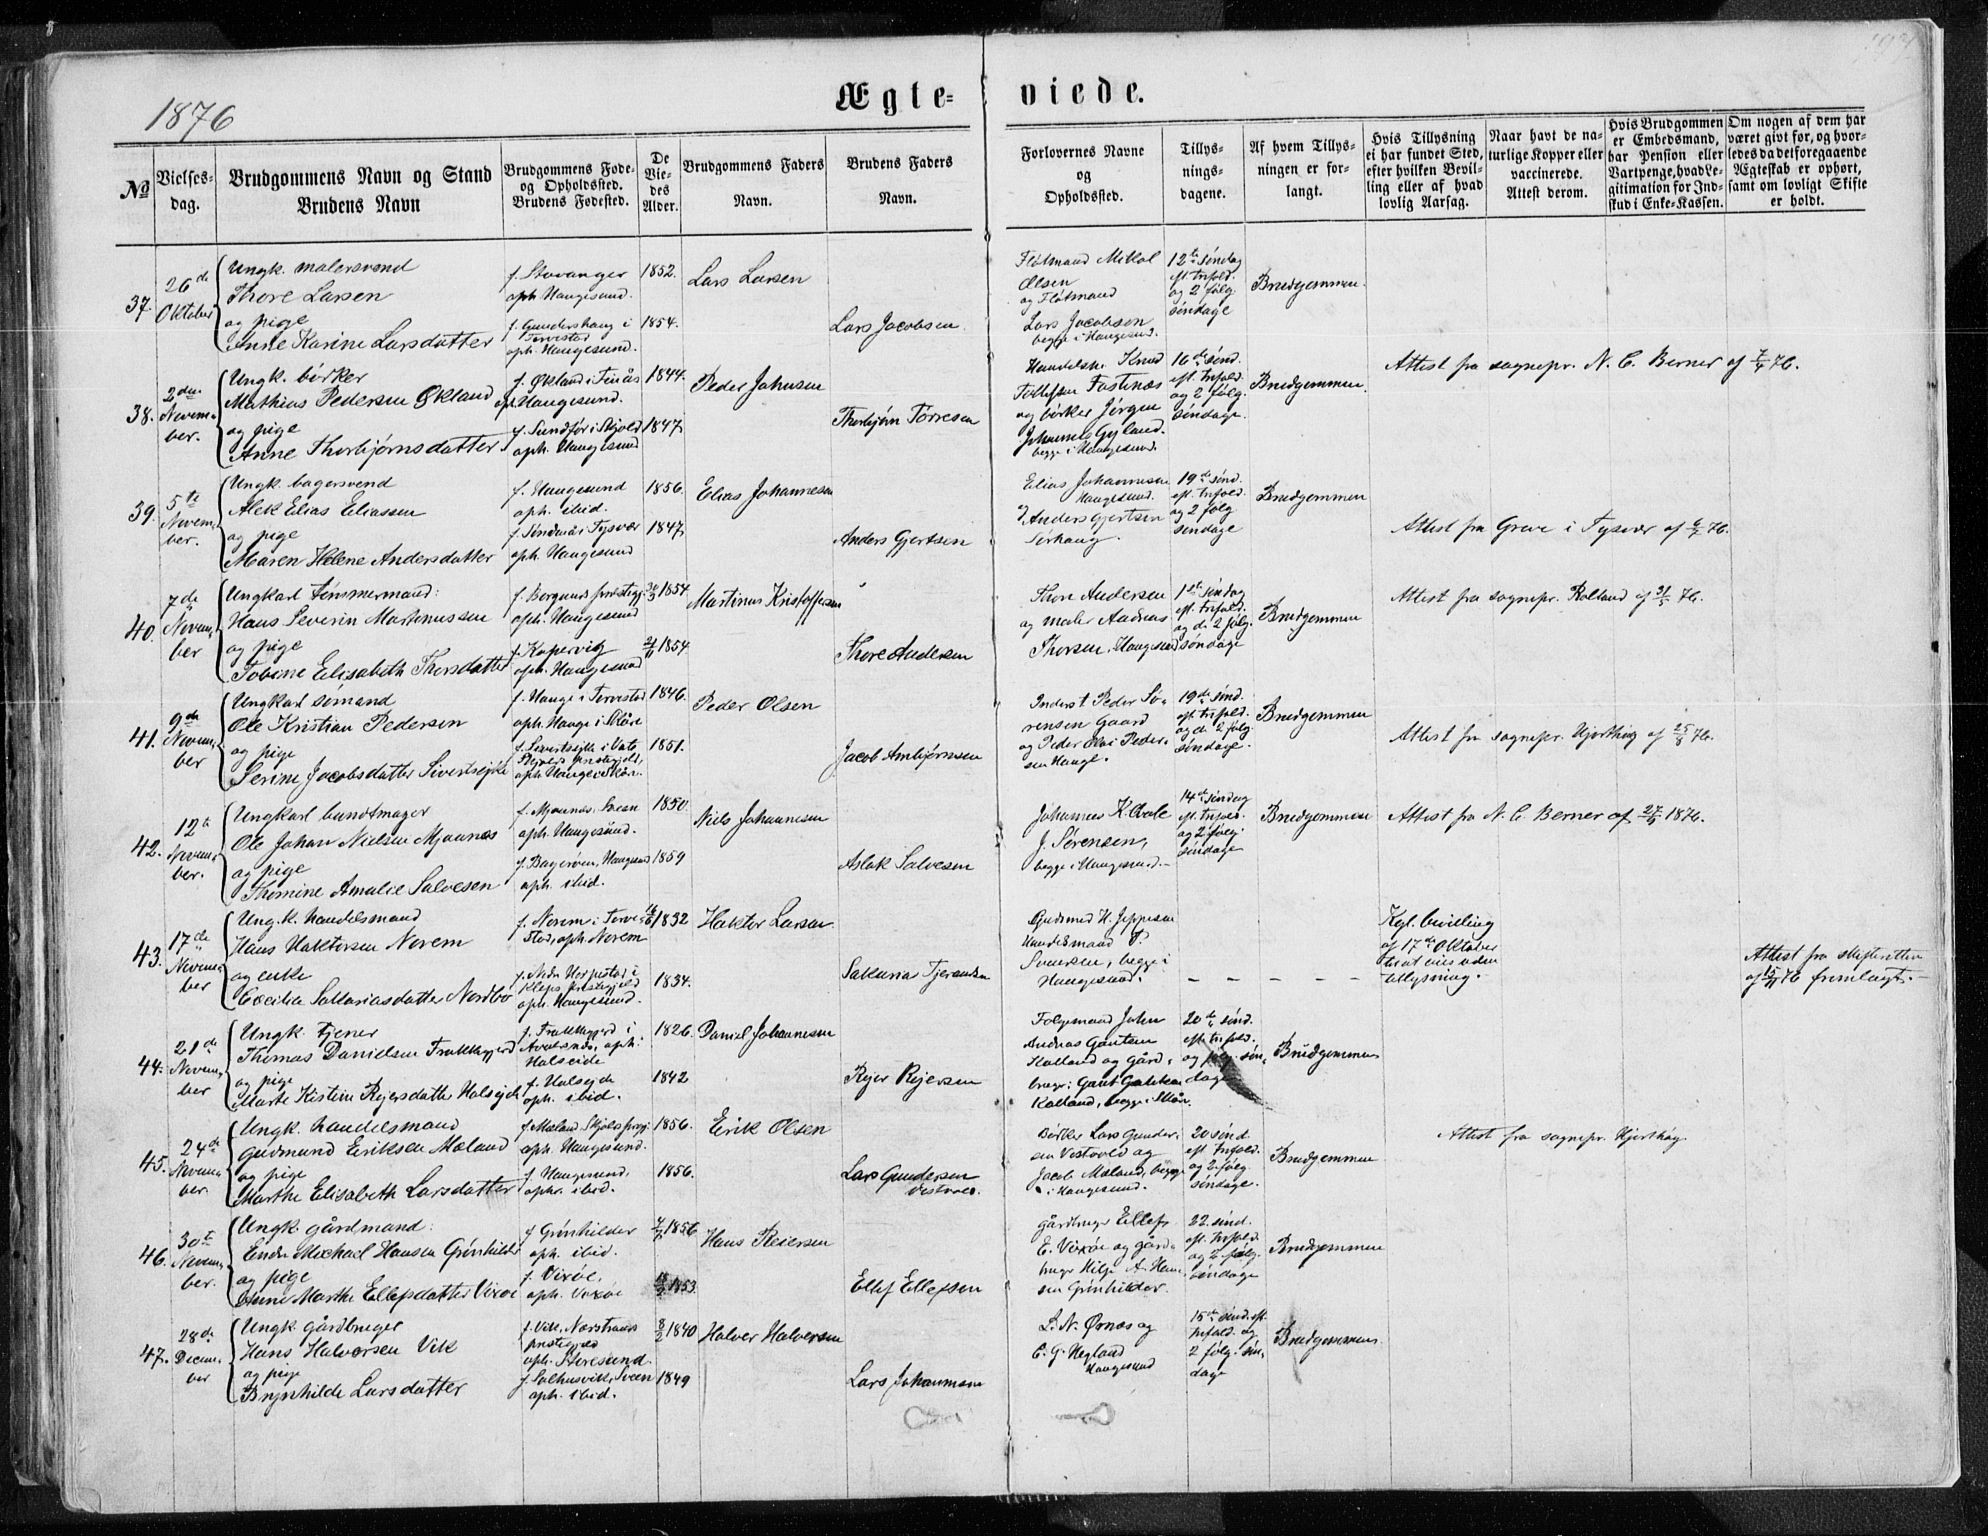 1876
Ægte-
viede.
No
Vielses-dag.
Brudgommens Navn og Stand
Brudens Navn
Brudgommens Føde- og Opholdssted.
Brudens Fødested.
De Vie-des Alder.
Brudgommens Faders Navn.
Brudens Faders Navn.
Forlovernes Navne og Opholdssted.
Tillys-nings-dagene.
Af hvem Tillys-ningen er for-langt.
Hvis Tillysning ei har fundet Sted, efter hvilken Bevil-ling eller af hvad lovlig Aarsag.
Naar havt de na-turlige Kopper eller vaccinerede. Attest derom.
Hvis Brudgommen er Embedsmand, har Pension eller Vartpenge, hvad Le-gitimation for Ind-skud i Enke-Kassen.
Om nogen af dem har været gift før, og hvor-ledes da det foregaaende Ægteskab er ophørt, samt om lovligt Skifte er holdt.
37. 26de Oktober
Ungk. malersvend
Thore Larsen
og pige
Anne Karine Larsdatter
f. Stavanger
oph. Haugesund.
f. Gundershaug i Torvestad
oph. Haugesund.
1852.
1854.
Lars Larsen
Lars Jacobsen
Flotmand Mikal Olsen
og Flotmand
Lars Jacobsen
begge i Haugesund.
12te søndag
eft. trefold.
og 2 følg.
søndage
Brudgommen.
38. 2den November.
Ungk. børker
Mathias Pedersen Økland
og pige
Anne Thorbjørnsdatter
f. Økland i Finås
op. Haugesund.
f. Sundfør i Skjold
oph. Haugesund
1844.
1847.
Peder Johnsen
Thorbjørn Torresen
Handelsm. Knud
Tollefsen Fastnæs
og børker Jørgen
Johannes Gyland.
begge i Haugesund.
16de sønd.
eft. trefold.
og 2 følg.
søndage.
Brudgommen.
Attest fra sognepr. N. C. Berner af 7/4 76.
39. 5te November.
Ungk. bagersvend
Alek Elias Eliassen
og pige
Maren Helene Andersdatter
f. Haugesund
oph. ibid.
f. Søndenå i Tysvær
oph. Haugesund
1856.
1847.
Elias Johannesen
Anders Gjertsen
Elias Johannesen
Haugesund.
og Anders Gjertsen
Sørhaug.
19de sønd.
eft. trefold.
og 2 følg
søndage
Brudgommen
Attest fra Greve i Tysvær af 6/7 76.
40. 7de November
Ungkarl tømmermand:
Hans Severin Martinussen
og pige
Tobine Elisabeth Thorsdatter
f. Borgunds prestegj.
oph. Haugesund
f. Kopervig
oph. Haugesund
30/3 1854
21/11 1854
Martinus Kristoffersen
Thore Andersen
Thore Andersen
og maler Andreas
Thorsen, Haugesund
søndag
eft. trefold.
og de 2 følg.
søndage
Brudgommen
Attest fra sognepr. Rolland af 31/5 76.
41. 9de November
Ungkarl sømand
Ole Kristian Pedersen
og pige
Serine Jacobsdatter Sivertsejke
f. Hauge i Torvestad
oph. Hauge i Skåre
f. Sivertsejke i Vats,
Skjolds prestegjeld,
oph. Hauge i Skåre.
1846.
1851.
Peder Olsen
Jacob Ambjørnsen
Inderst Peder Sø-
rensen Gaard
og Peder Olai Peder-
sen Hauge.
19de sønd.
eft. trefold.
og de 2 følg.
søndage.
Brudgommen
Attest fra sognepr. Hjorthøg af 25/8 76.
42. 12te November.
Ungkarl bundtmager
Ole Johan Nielsen Mjaanæs
og pige
Thomine Amalie Salvesen
f. Mjaanæs, Sveen
oph. Haugesund.
f. Bagerøen, Haugesund
oph. ibid.
1850.
1859
Niels Johannesen
Aslak Salvesen
Johannes Kldvale
J. Sørensen,
begge i Haugesund.
14de søndag
eft. trefold.
og 2 følg.
søndage
Brudgommen
Attest fra N. C. Berner af 27/4 1876.
43. 17de November
Ung.k. handelsmand
Hans Haktorsen Norem
og enke
Cecilie Sakariasdatter Nordbø
f. Norem i Torve-
stad, oph. Norem
f. Nedre Horpestad i
Kleps prestegjeld
oph. Haugesund.
16/6 1832
1834.
Haktor Larsen
Sakarias Tjerandsen
Gudmund H. Jeppesen
Handelsmand P.
Svensen, begge i
Haugesund.
Kgl. bevilling
af 17de Oktober
til at vies uden
tillysning.
Attest fra skifteretten
af 15/11 76 fremlagt.
44. 21de November
Ungk. tjener
Thomas Danielsen Frakkagjerd
og pige
Marte Kistine Rejersdatter Halsejde
f. Frakkagjerd i
Avaldsnæs, oph.
Halseide
f. Halsejde
oph. ibid.
1826.
1842
Daniel Johannesen
Rejer Rejersen
Folgemand John
Andreas Gautsen
Kalland og gård-
bruger Gaut Gautsen
Kalland, begge i Skåre.
20de sønd.
eft. trefold.
og følg. søn-
dage
Brudgommen
45. 24de November.
Ungk. handelsmand
Gudmund Eriksen Mæland
og pige
Marthe Elisabeth Larsdatter
f. Mæland, Skjolds prgj.
oph. Haugesund.
f. Haugesund.
oph. ibid.
1856.
1856.
Erik Olsen
Lars Gundersen
Vestvold.
Børker Lars Gunder-
sen Vestvold og
Jacob Mæland, begge
i Haugesund.
20 sønd.
eft. trefold.
og 2 følg.
søndage.
Brudgommen
Attest fra sognepr. Hjorthøg
46. 30te November.
Ungk. gårdmand.
Endre Mickael Hansen Grønhilder
og pige
Anne Marthe Ellefsdatter Vixøe
f. Grønhilder
oph. ibid.
f. Vixøe,
oph. Vixøe
1856
1853
Hans Reiersen
Ellef Ellefsen
Gårdbruger Ellef
E. Vixøe og gård-
bruger Hilje A. Han-
sen Grønhilder.
22. sønd.
eft. trefold.
og 2 følg.
søndage
Brudgommen
47. 28de December
Ungk. gårdbruger
Hans Halvorsen Vik
og pige
Brynhilde Larsdatter
f. Vik, Nærstrands
prestegjeld
oph. Storesund.
f. Salhusvik, Sveen
oph. ibid.
8/2 1840
1849
Halver Halversen
Lars Johannesen
L. N. Ørnæs og
C. G. Hegland
Haugesund
15de sønd. eft.
trefold. og
2 følg. søn-
dage
Brudgommen.